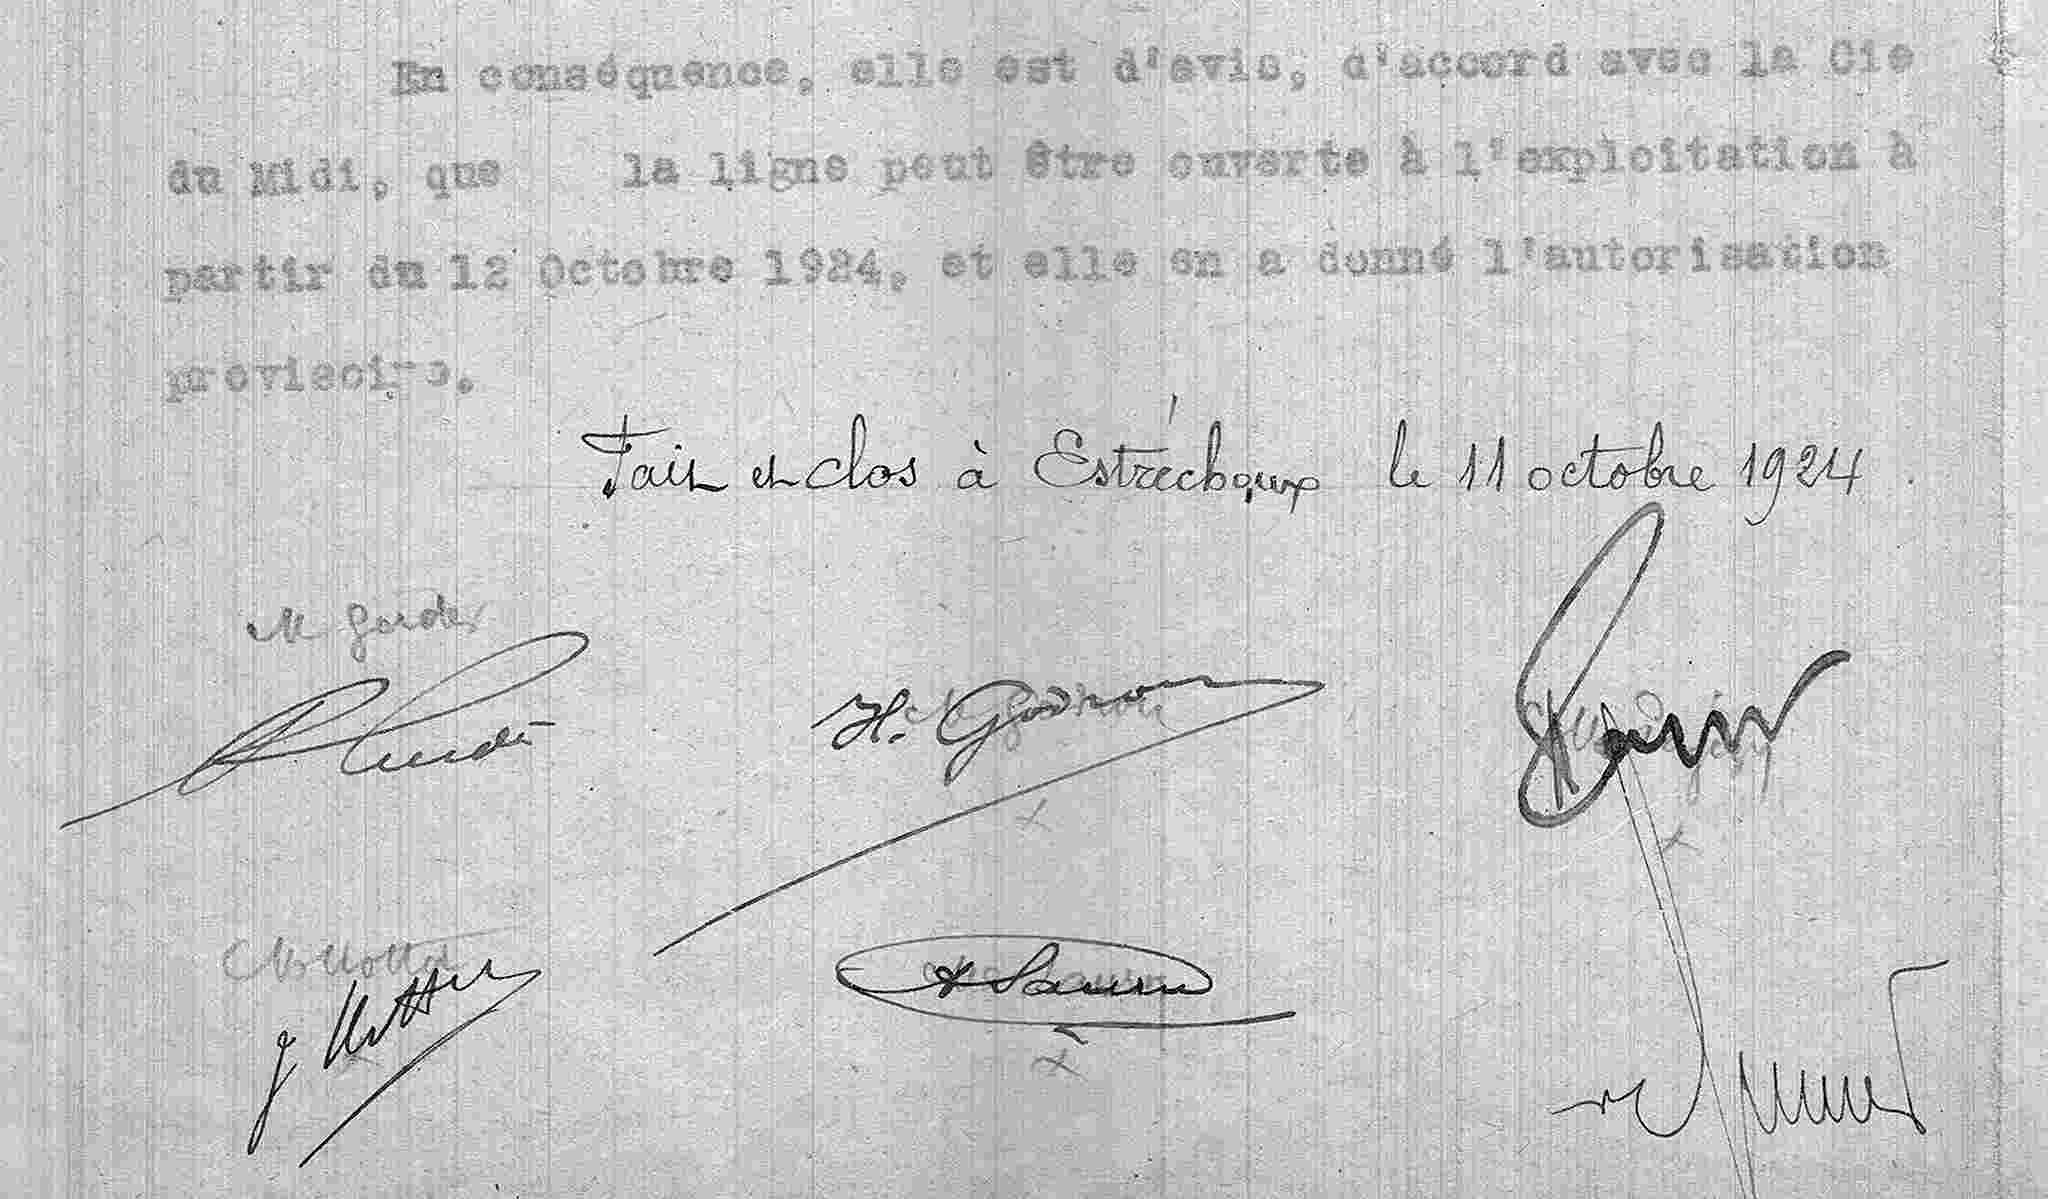 En conséquence, elle est d'avis, d'accord avec la Cie
du Midi, que la ligne peut être ouverte à l'exploitation à
partir du 12 Octobre 1924, et elle en a donné l'autorisation
provisoire.
Fait et clos à Estréchoux le 11 octobre 1924.
M Gardes
H. Godron